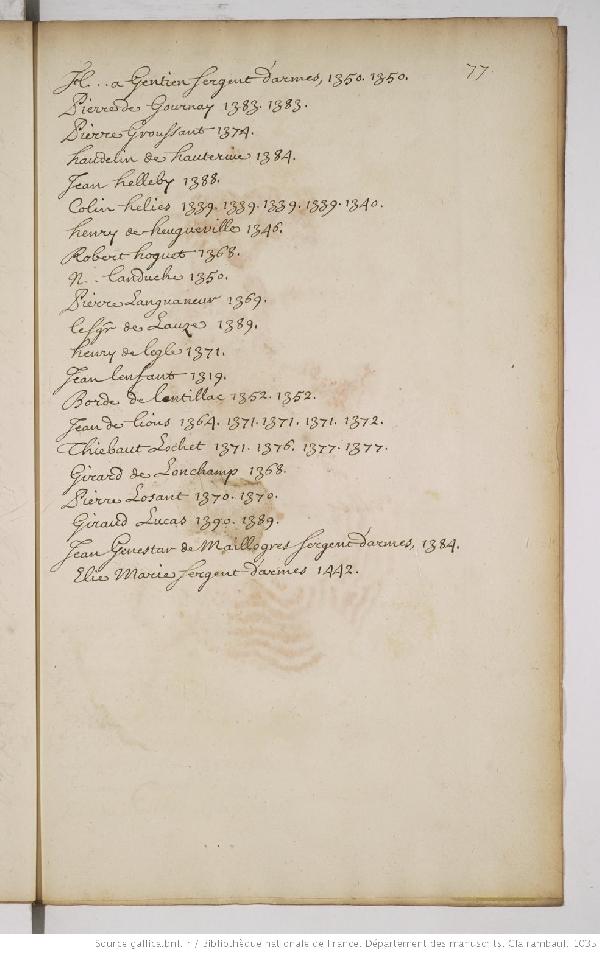 77.
Jel... a Gentien sergent d'armes, 1350. 1350.
Pierre de Gournay 1383. 1383.
Pierre Groussant 1374.
haudelin de hauterive 1384.
Jean helleby 1388.
Colin helies 1339. 1339. 1339. 1339. 1340.
henry de heugueville 1346.
Robert hoquet 1368.
N... landuche 1350.
Pierre Languaneur 1369.
le sgr de Lauze 1389.
henry de logle 1371.
Jean lenfant 1319.
Borde de lentillac 1352. 1352.
Jean de lions 1364. 1371. 1371. 1371. 1372.
Thiebaut Lochet 1371. 1376. 1377. 1377.
Girard de Lonchamp 1368.
Pierre Losant 1370. 1370.
Giraud Lucas 1390. 1389.
Jean Genestar de Maillogres sergent d'armes, 1384.
Elie Marie sergent d'armes 1442.
Source gallica.bnf.fr / Bibliothèque nationale de France. Département des manuscrits. Clairambault 1035